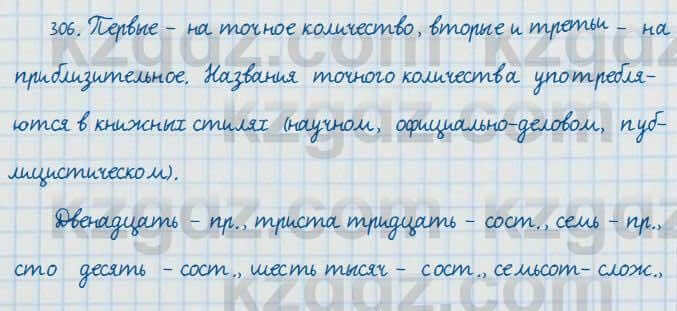 306. Первые - на точное количество, вторые и третьи - на
приблизительное. Названия точного количества употребля-
ются в книжных стилях (научном, официально-деловом, пуб-
лицистическом).
Двенадцать - пр., триста тридцать - сост., семь - пр.,
сто десять - сост., шесть тысяч - сост., семьсот - слож.,